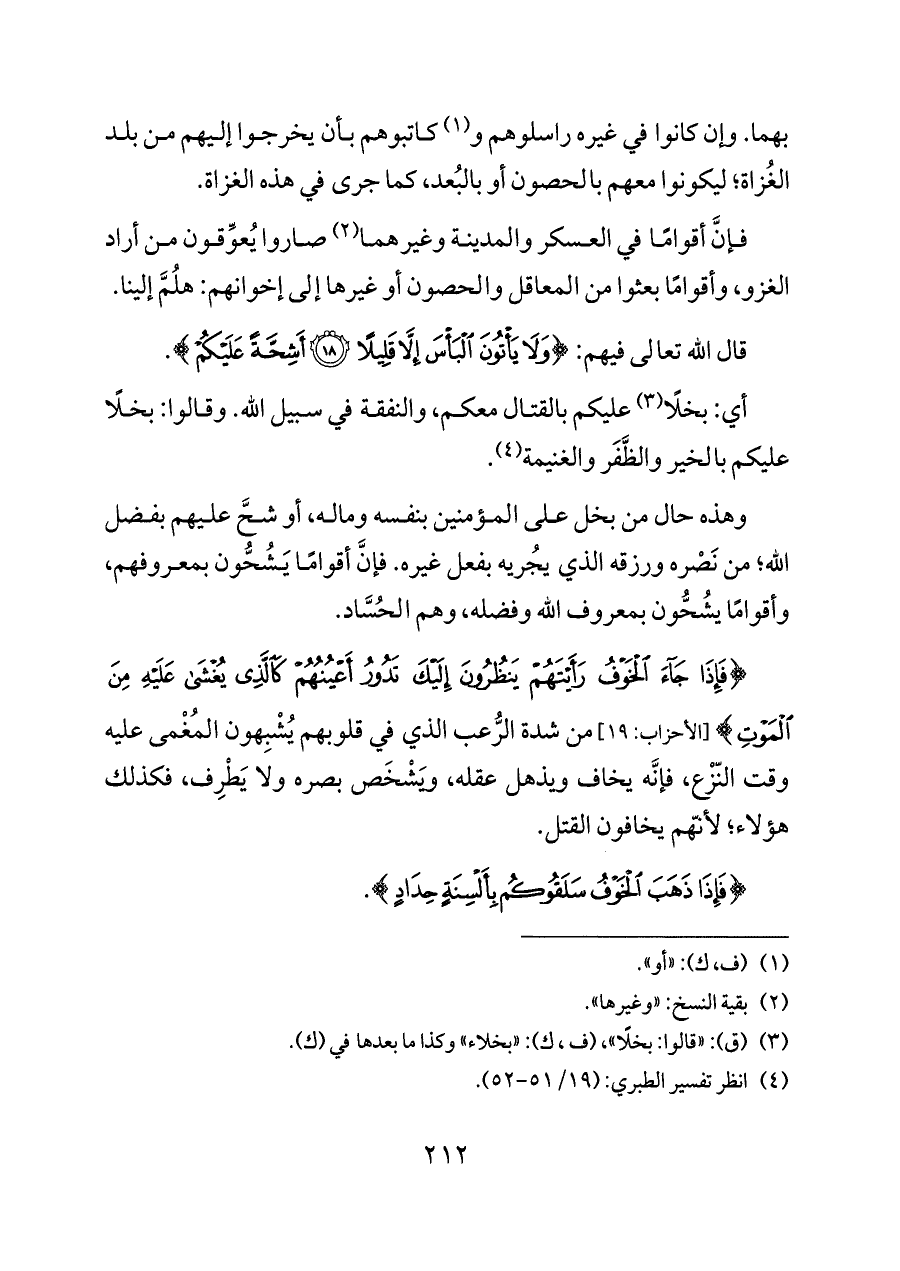 بهما. وإن كانوا في غيره راسلوهم و(١) كاتبوهم بأن يخرجوا إليهم من بلد
الغُزاة؛ ليكونوا معهم بالحصون أو بالبُعد، كما جرى في هذه الغزاة.
فإنَّ أقوامًا في العسكر والمدينة وغيرهما(٢) صاروا يُعوِّقون من أراد
الغزو، وأقوامًا بعثوا من المعاقل والحصون أو غيرها إلى إخوانهم: هلُمَّ إلينا.
قال الله تعالى فيهم: ﴿وَلَا يَأْتُونَ ٱلْبَأْسَ إِلَّا قَلِيلًا ١٨ أَشِحَّةً عَلَيْكُمْ﴾.
أي: بخلًا(٣) عليكم بالقتال معكم، والنفقة في سبيل الله. وقالوا: بخلًا
عليكم بالخير والظَّفَر والغنيمة(٤).
وهذه حال من بخل على المؤمنين بنفسه وماله، أو شحَّ عليهم بفضل
الله؛ من نَصْره ورزقه الذي يجُريه بفعل غيره. فإنَّ أقوامًا يَشُحُّون بمعروفهم،
وأقوامًا يشُحُّون بمعروف الله وفضله، وهم الحُسَّاد.
﴿فَإِذَا جَآءَ ٱلْخَوْفُ رَأَيْتَهُمْ يَنظُرُونَ إِلَيْكَ تَدُورُ أَعْيُنُهُمْ كَٱلَّذِى يُغْشَىٰ عَلَيْهِ مِنَ
ٱلْمَوْتِ﴾ [الأحزاب: ١٩] من شدة الرُّعب الذي في قلوبهم يُشْبِهون المُغْمى عليه
وقت النّزْع، فإنَّه يخاف ويذهل عقله، ويَشْخَص بصره ولا يَطْرِف، فكذلك
هؤلاء؛ لأنّهم يخافون القتل.
﴿فَإِذَا ذَهَبَ ٱلْخَوْفُ سَلَقُوكُم بِأَلْسِنَةٍ حِدَادٍ﴾.
(١) (ف، ك): «أو».
(٢) بقية النسخ: «وغيرها».
(٣) (ق): «قالوا: بخلًا»، (ف، ك): «بخلاء» وكذا ما بعدها في (ك).
(٤) انظر تفسير الطبري: (١٩/ ٥١-٥٢).
٢١٢